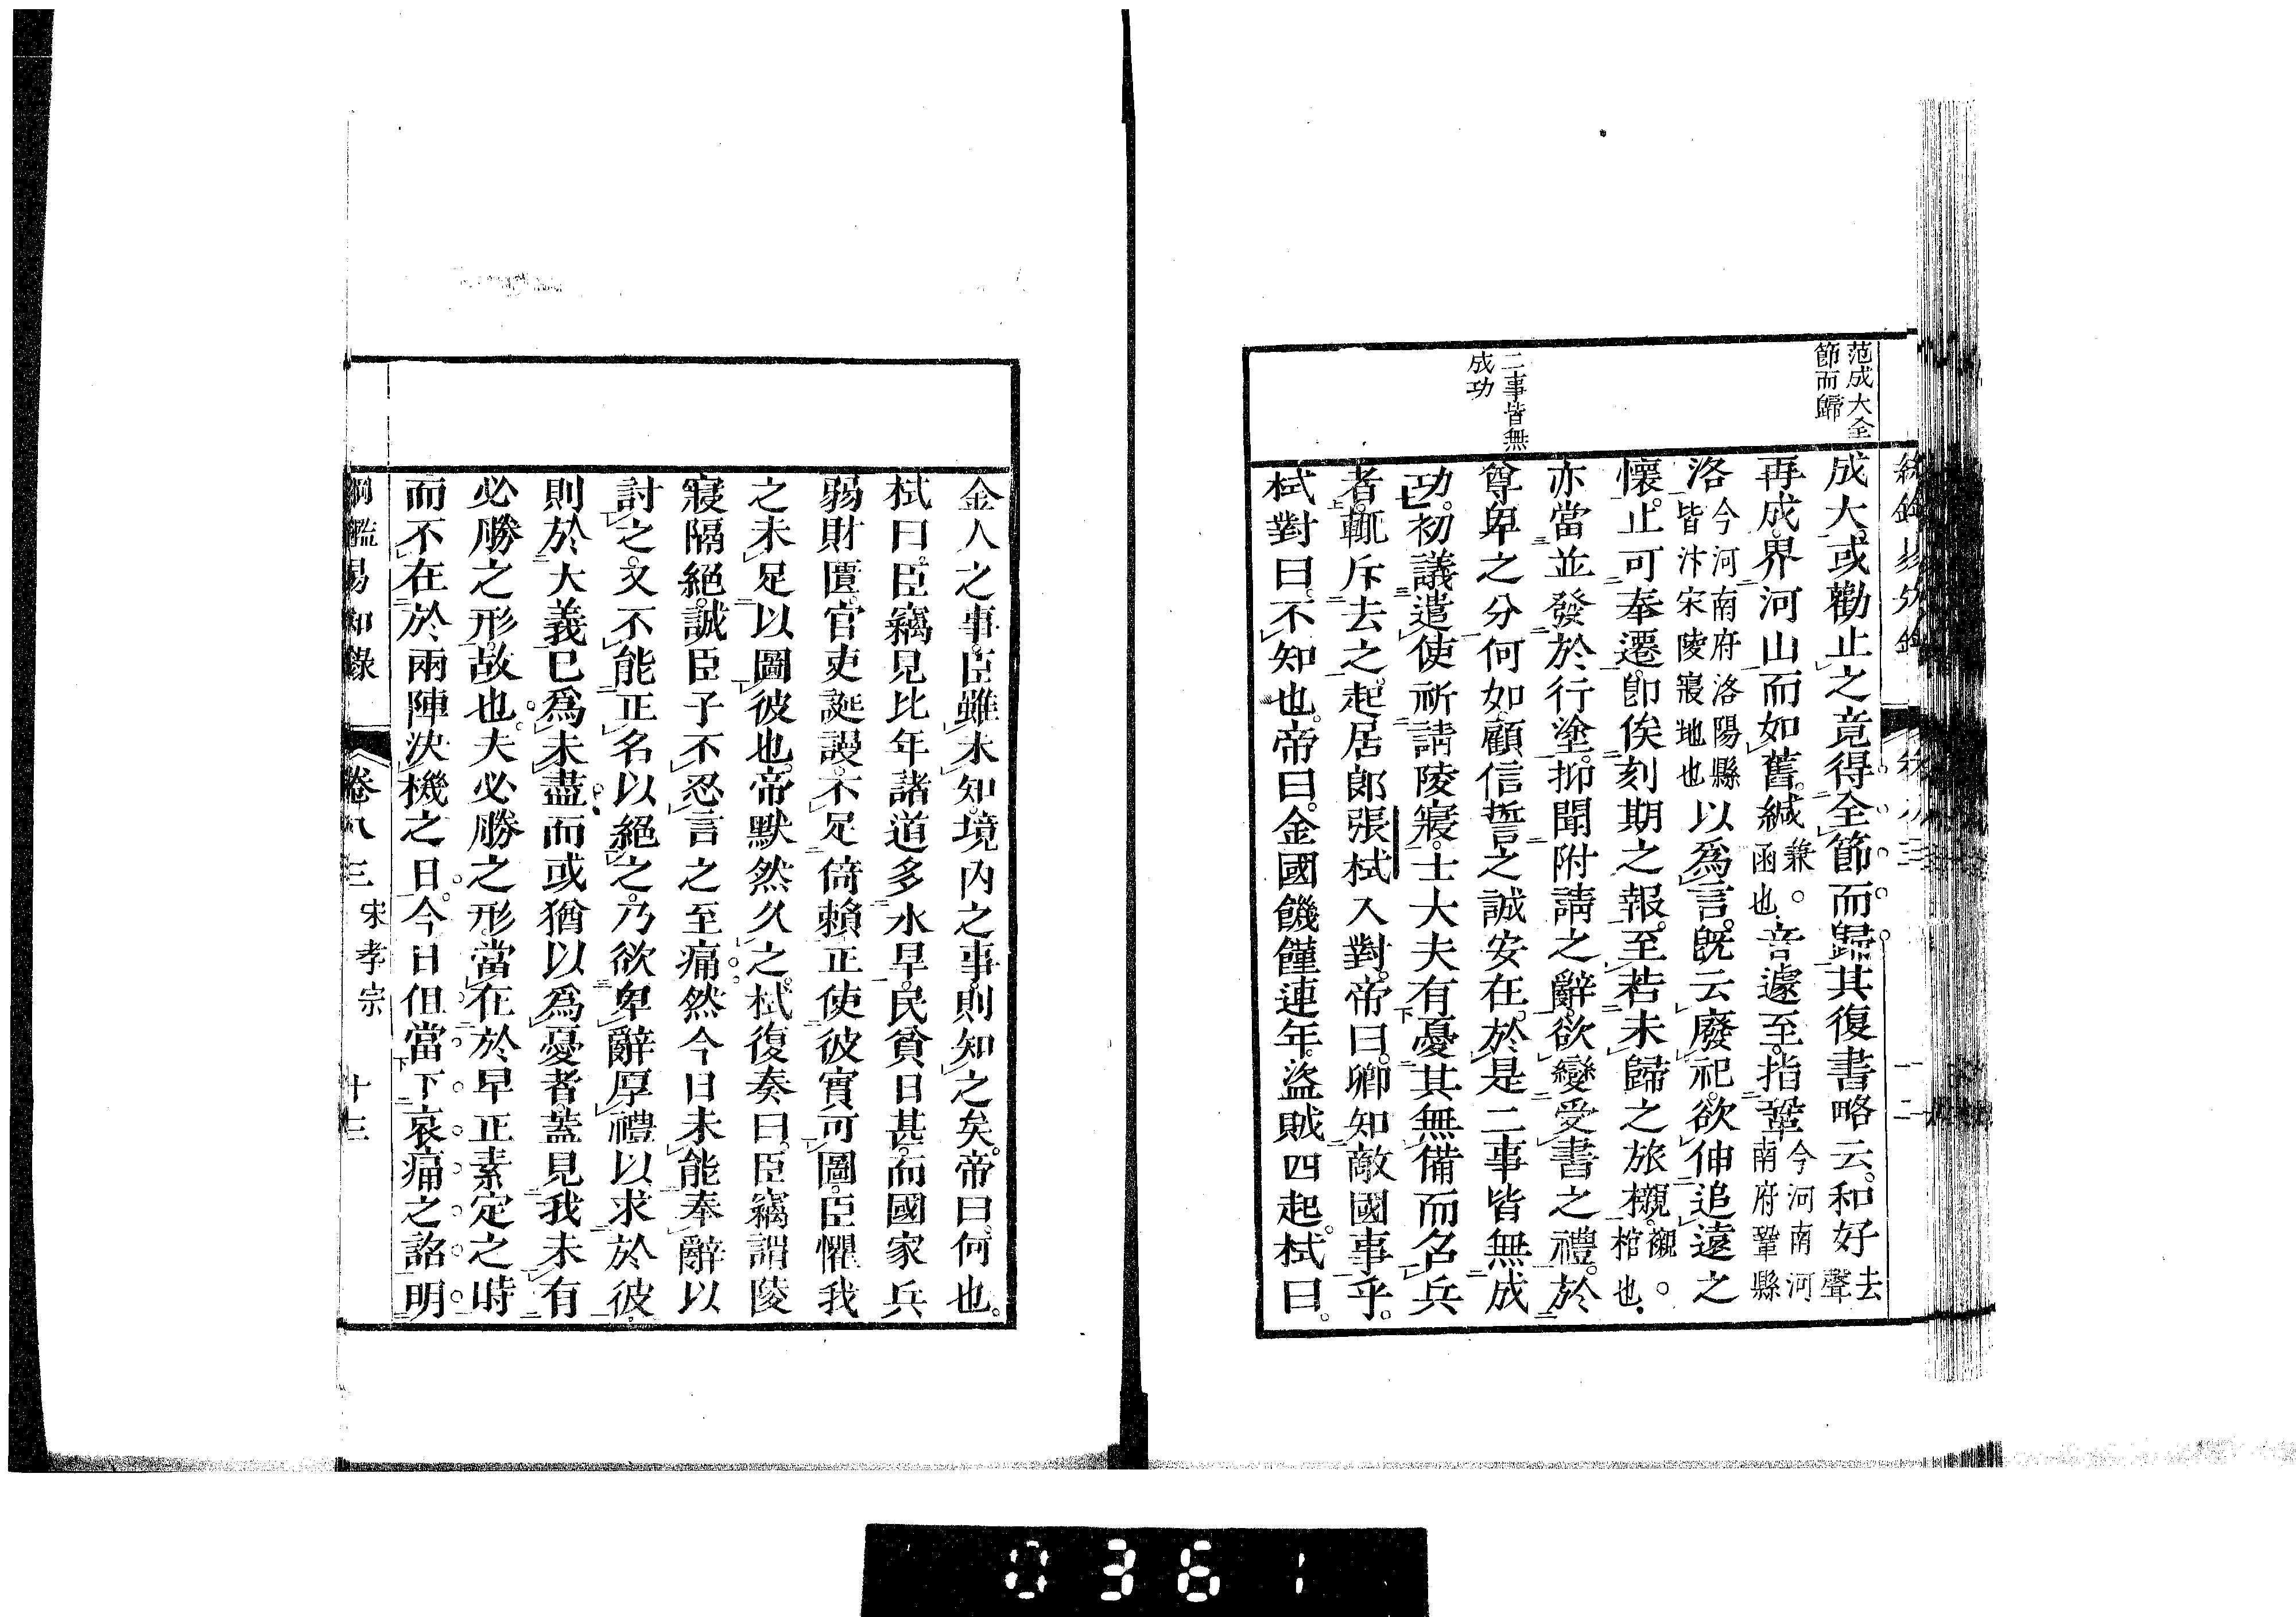 范成大全
節而歸
二事皆無
成功
成大。或勸止之。竟得全節而歸。其復書略云。和好去聲
再成。界河山而如舊。緘兼。函也。音遽至。指鞏今河南河南府鞏縣
洛今河南府洛陽縣皆汴宋陵寢地也以爲言。旣云廢祀。欲伸追遠之
懷。止可奉遷。卽俟刻期之報。至若未歸之旅櫬。襯。棺也。
亦當並發於行塗。抑聞附請之辭。欲變受書之禮。於
尊卑之分何如。顧信誓之誠安在。於是二事皆無成
功。初議遣使祈請陵寢。士大夫有憂其無備而召兵
者。輒斥去之。起居郎張栻入對。帝曰。卿知敵國事乎。
栻對曰。不知也。帝曰。金國饑饉連年。盜賊四起。栻曰。
金人之事。臣雖未知。境內之事。則知之矣。帝曰。何也。
栻曰。臣竊見比年諸道多水旱。民貧日甚。而國家兵
弱財匱。官吏誕謾。不足倚賴。正使彼實可圖。臣懼我
之未足以圖彼也。帝默然久之。栻復奏曰。臣竊謂陵
寢隔絕。誠臣子不忍言之至痛。然今日未能奉辭以
討之。又不能正名以絕之。乃欲卑辭厚禮以求於彼。
則於大義已爲未盡。而或猶以爲憂者。蓋見我未有
必勝之形故也。夫必勝之形。當在於早正素定之時
而不在於兩陣決機之日。今日但當下哀痛之詔。明
綱鑑易知錄 卷八三 宋孝宗 十三